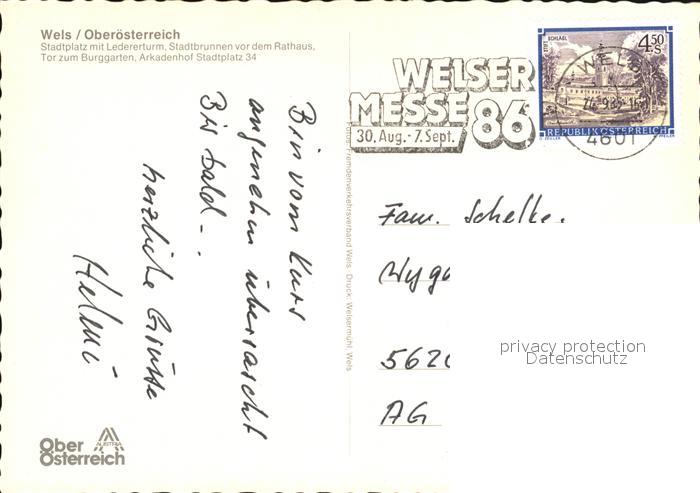 Wels / Oberösterreich
Stadtplatz mit Ledererturm, Stadtbrunnen vor dem Rathaus,
Tor zum Burggarten, Arkadenhof Stadtplatz 34
Bin vom Kurs
angenehm überrascht
Bis bald - .
herzliche Grüsse
Helmi
Ober
Österreich
AUSTRIA
Fremdenverkehrsverband Wels. Druck: Welsermühl, Wels
WELSER
MESSE 86
30. Aug. - 7. Sept.
STIFT SCHLÄGL
4.50
S
REPUBLIK ÖSTERREICH
WELS
4601
Fam. Schelke.
Wyg
562
AG
privacy protection
Datenschutz